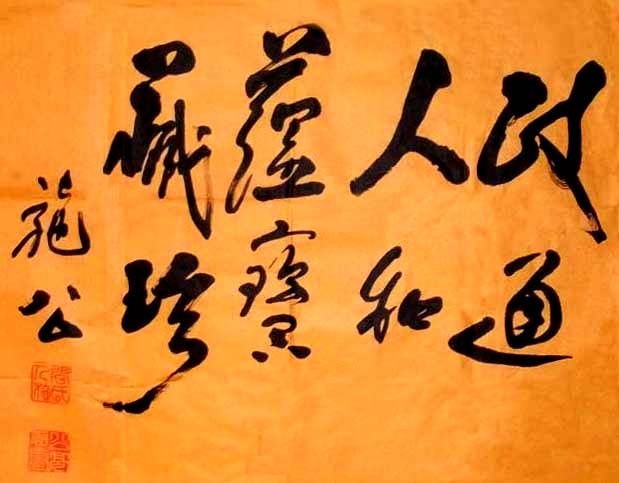 政通
人和
蘊寶
藏珍
龍公